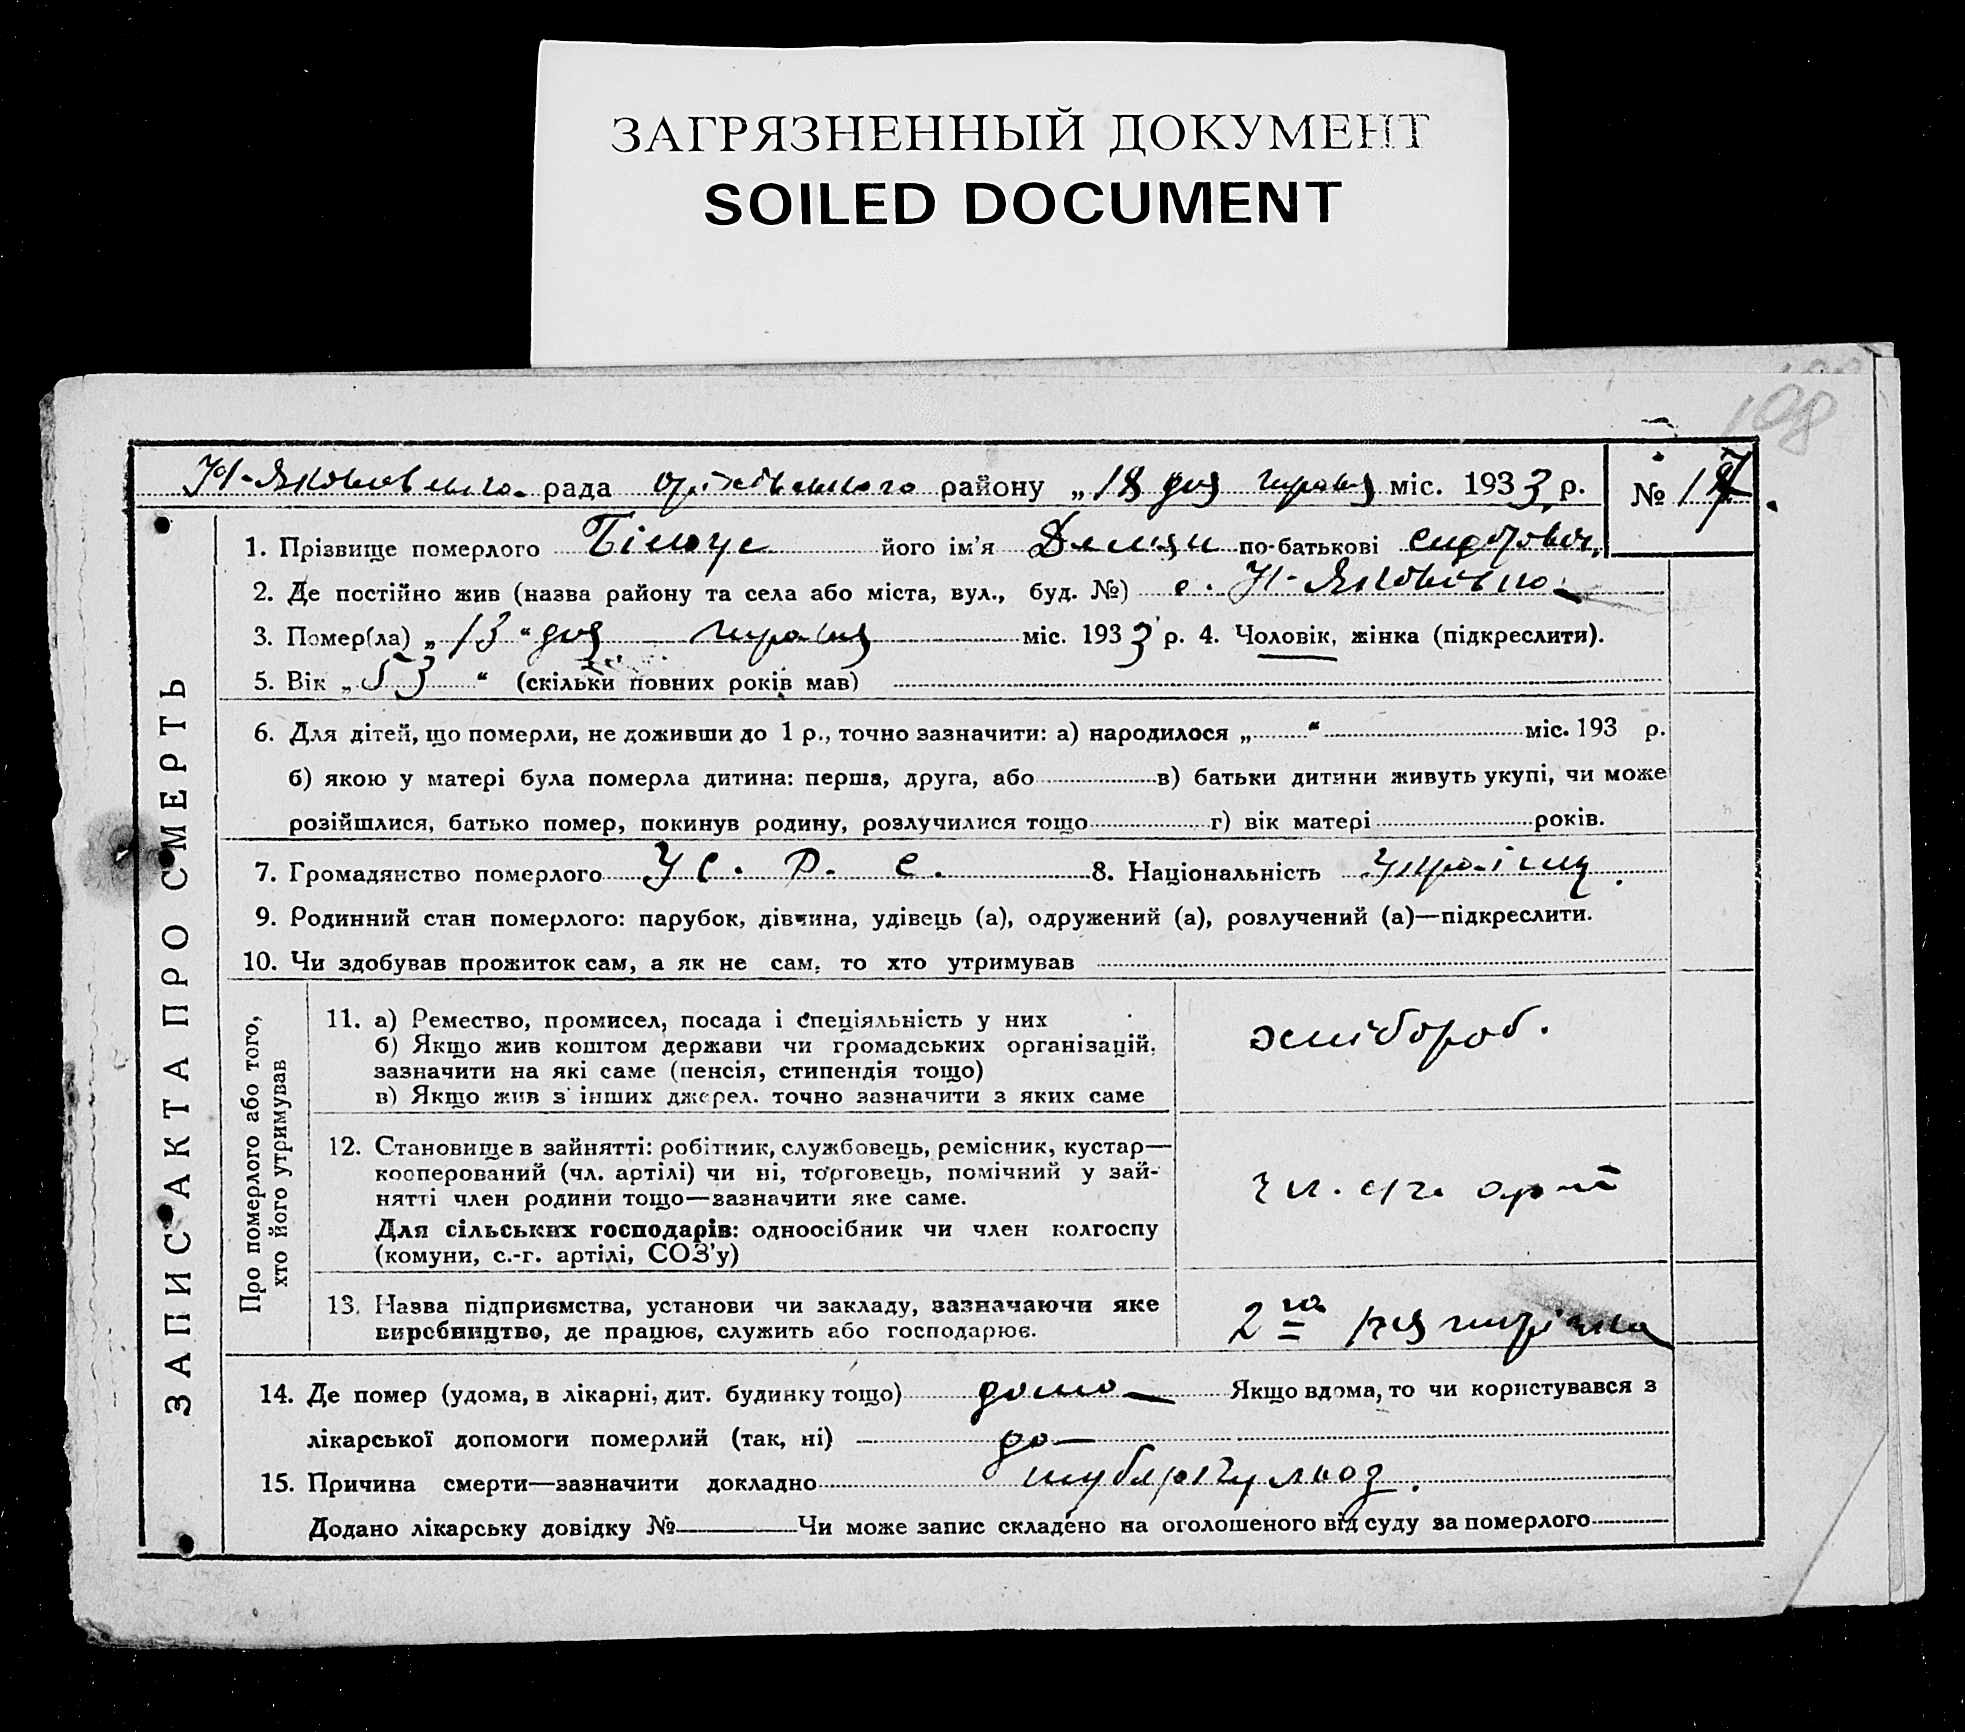 ЗАГРЯЗНЕННЫЙ ДОКУМЕНТ
SOILED DOCUMENT
108
Н-Яковлевська рада Оріхівського району „18 дня травня міс. 1933 р. № 17
1. Прізвище померлого Білоус його ім'я Демян по-батькові Сидорович
2. Де постійно жив (назва району та села або міста, вул., буд. №) с. Н-Яковлівка
3. Помер(ла) „13“ дня травня міс. 1933 р. 4. Чоловік, жінка (підкреслити).
5. Вік „53“ (скільки повних років мав)
6. Для дітей, що померли, не доживши до 1 р., точно зазначити: а) народилося „ “ міс. 193 р.
б) якою у матері була померла дитина: перша, друга, або в) батьки дитини живуть укупі, чи може
розійшлися, батько помер, покинув родину, розлучилися тощо г) вік матері років.
7. Громадянство померлого У С. Р. С. 8. Національність
9. Родинний стан померлого: парубок, дівчина, удівець (а), одружений (а), розлучений (а)—підкреслити.
10. Чи здобував прожиток сам, а як не сам, то хто утримував
ЗАПИС АКТА ПРО СМЕРТЬ
Про померлого або того,
хто його утримував
11. а) Ремество, промисел, посада і спеціяльність у них
б) Якщо жив коштом держави чи громадських організацій,
зазначити на які саме (пенсія, стипендія тощо)
в) Якщо жив з інших джерел. точно зазначити з яких саме
хлібороб.
12. Становище в зайнятті: робітник, службовець, ремісник, кустар—
кооперований (чл. артілі) чи ні, торговець, помічний у зай-
нятті член родини тощо—зазначити яке саме.
Для сільських господарів: одноосібник чи член колгоспу
(комуни, с.-г. артілі, СОЗ'у)
чл. с/г. арт
13. Назва підприємства, установи чи закладу, зазначаючи яке
виробництво, де працює, служить або господарює.
2га
14. Де помер (удома, в лікарні, дит. будинку тощо) дома Якщо вдома, то чи користувався з
лікарської допомоги померлий (так, ні) да
15. Причина смерти—зазначити докладно туберкульоз.
Додано лікарську довідку № Чи може запис складено на оголошеного від суду за померлого